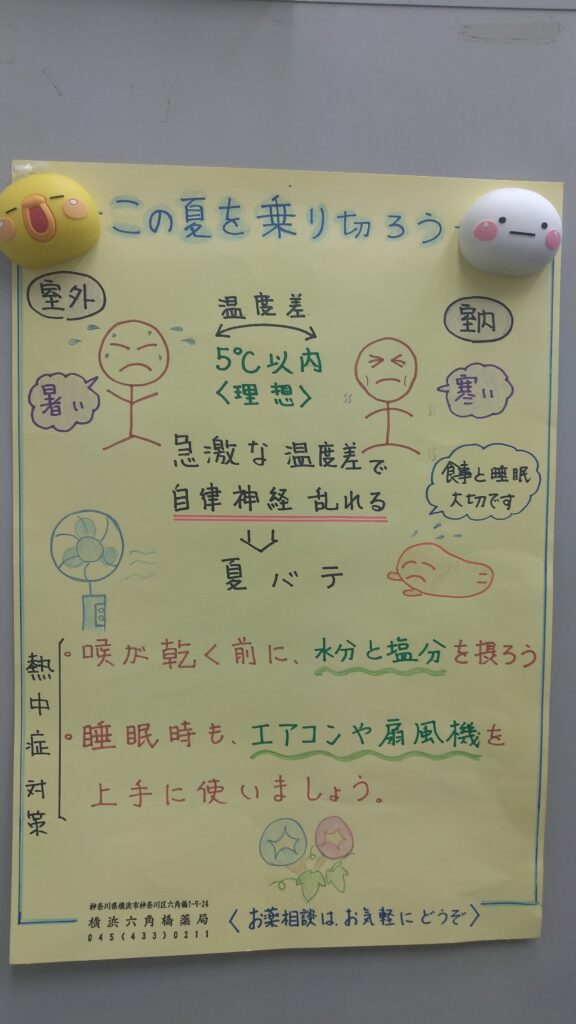 この夏を乗り切ろう
室外
温度差
室内
暑い
5℃以内
<理想>
寒い
急激な温度差で
自律神経乱れる
食事と睡眠
大切です
夏バテ
熱中症対策
・喉が乾く前に、水分と塩分を摂ろう
・睡眠時も、エアコンや扇風機を
上手に使いましょう。
神奈川県横浜市神奈川区六角橋1-9-24
横浜六角橋薬局
045(433)0211
<お薬相談は、お気軽にどうぞ>